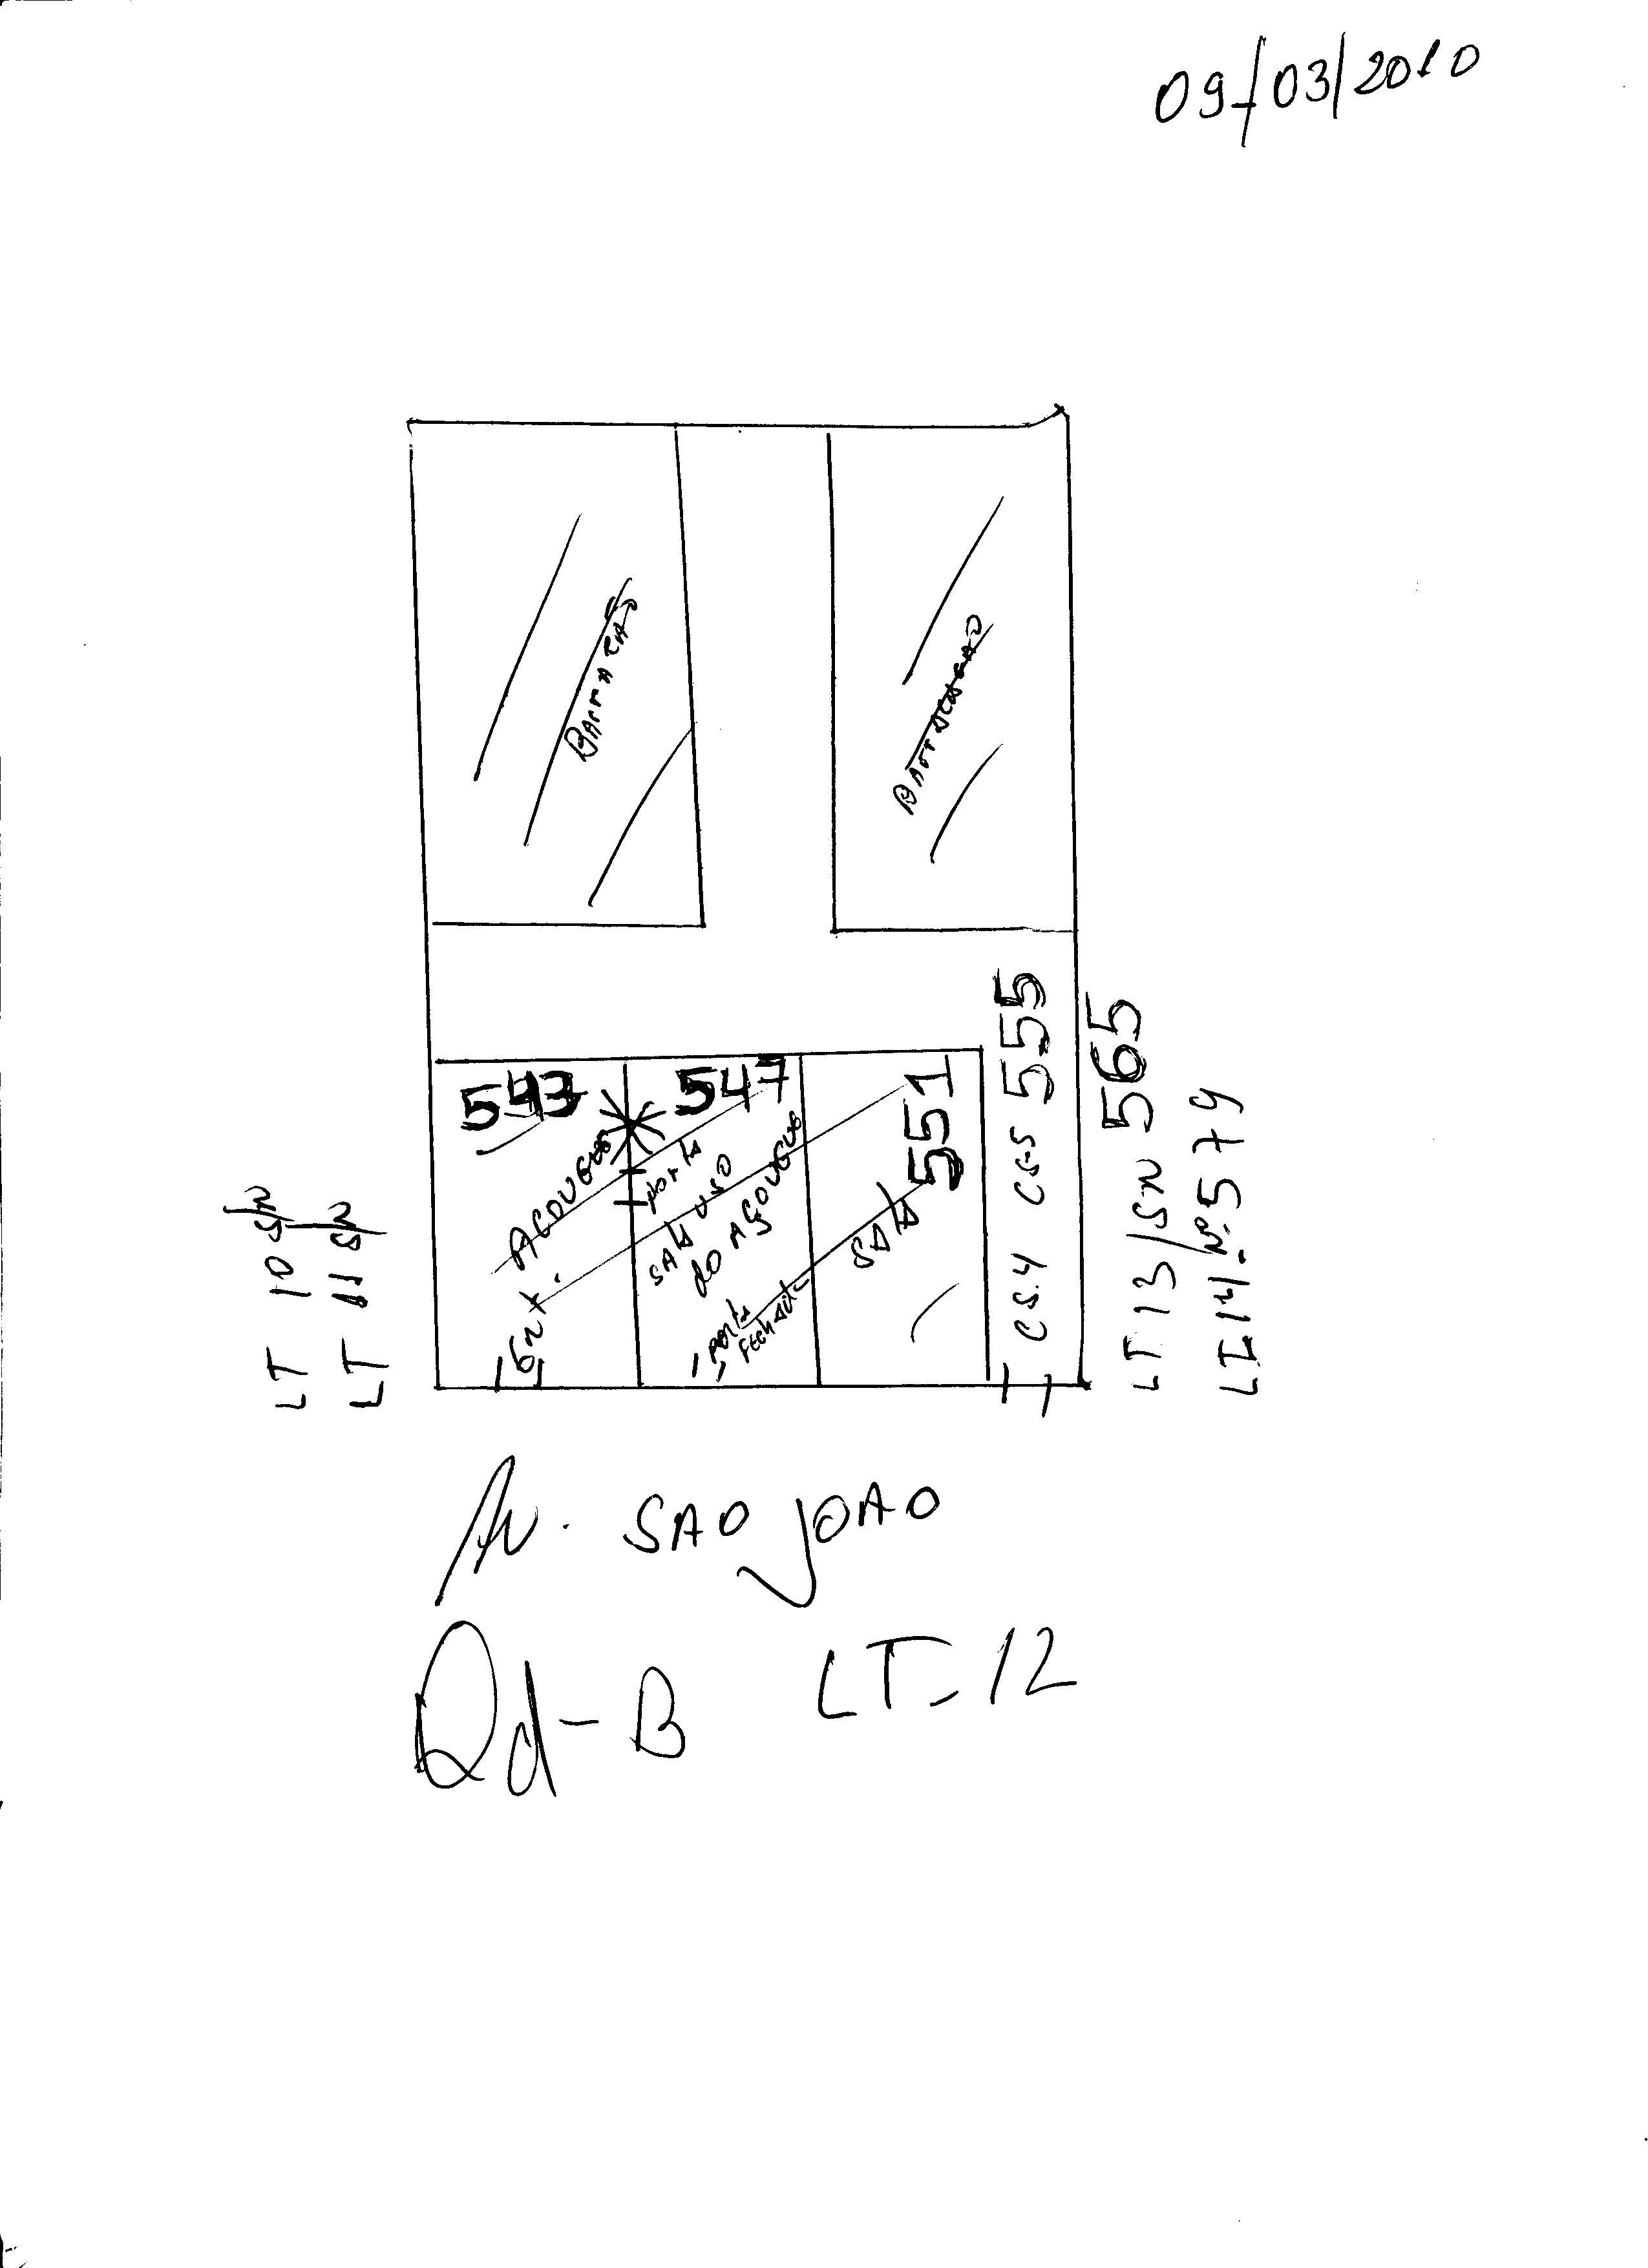 09/03/2010
BArrACÃO
543
547
551
AÇOUGUE
porta
SALA USO
do AÇOUGUE
porta
FECHADA
SALA
CS.4 CS-5 555
LT 10 S/N
LT 11 S/N
LT 13/SN 565
LT 14. Nº 579
Av. SAO JOAO
Qd-B LT-12